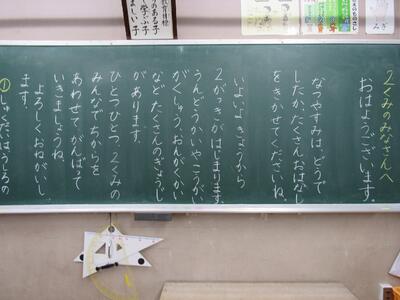 ２くみのみなさんへ
おはようございます。
なつやすみは、どうで
したか。たくさんおはなし
をきかせてくださいね。
いよいよきょうから
２がっきがはじまります。
うんどうかいやこうがい
がくしゅう、おんがくかい
など たくさんのぎょうじ
があります。
ひとつひとつ、２くみの
みんなでちからを
あわせてがんばって
いきましょうね。
よろしくおねがいし
ます。
①しゅくだいはうしろの
みぎ